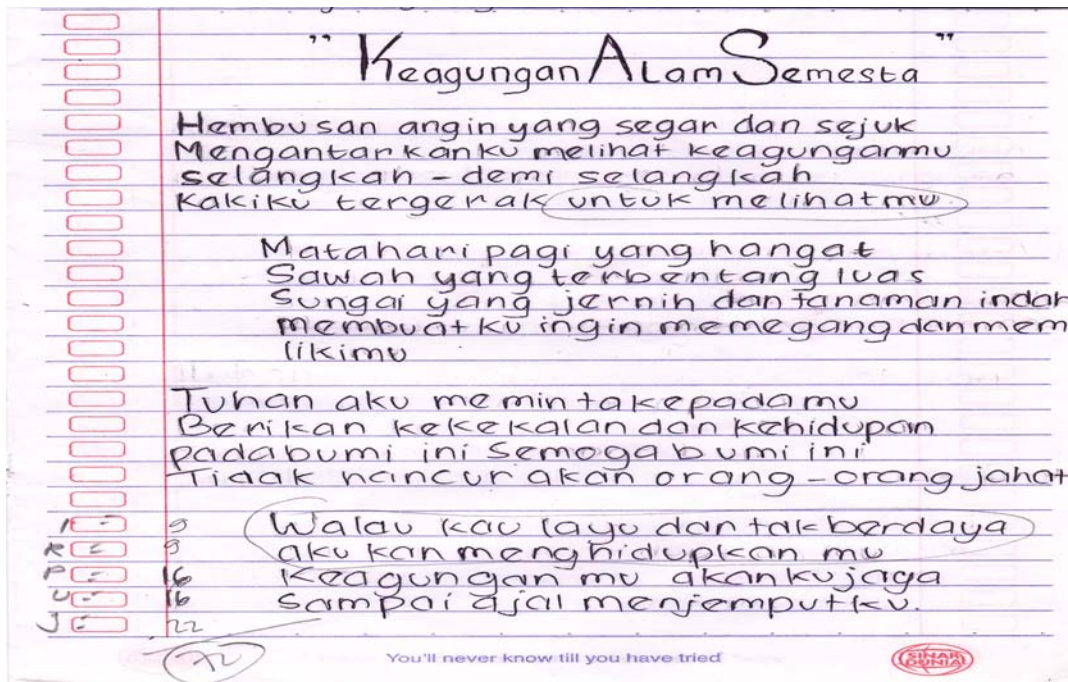 " Keagungan ALam Semesta "
Hembusan angin yang segar dan sejuk
Mengantarkanku melihat keagunganmu
selangkah - demi selangkah
kakiku tergerak untuk melihatmu
Matahari pagi yang hangat
Sawah yang terbentang luas
Sungai yang jernih dan tanaman indah
membuatku ingin memegang dan mem
likimu
Tuhan aku meminta kepadamu
Berikan kekekalan dan kehidupan
pada bumi ini Semoga bumi ini
Tidak hancur akan orang - orang jahat
I = 9 Walau kau layu dan tak berdaya
R = 9 aku kan menghidupkan mu
P = 16 Keagungan mu akan kujaga
U = 16 Sampai ajal menjemputku.
J = 22
72
You'll never know till you have tried
SINAR DUNIA